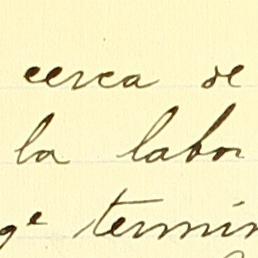 cerca de
la labor
ge termin